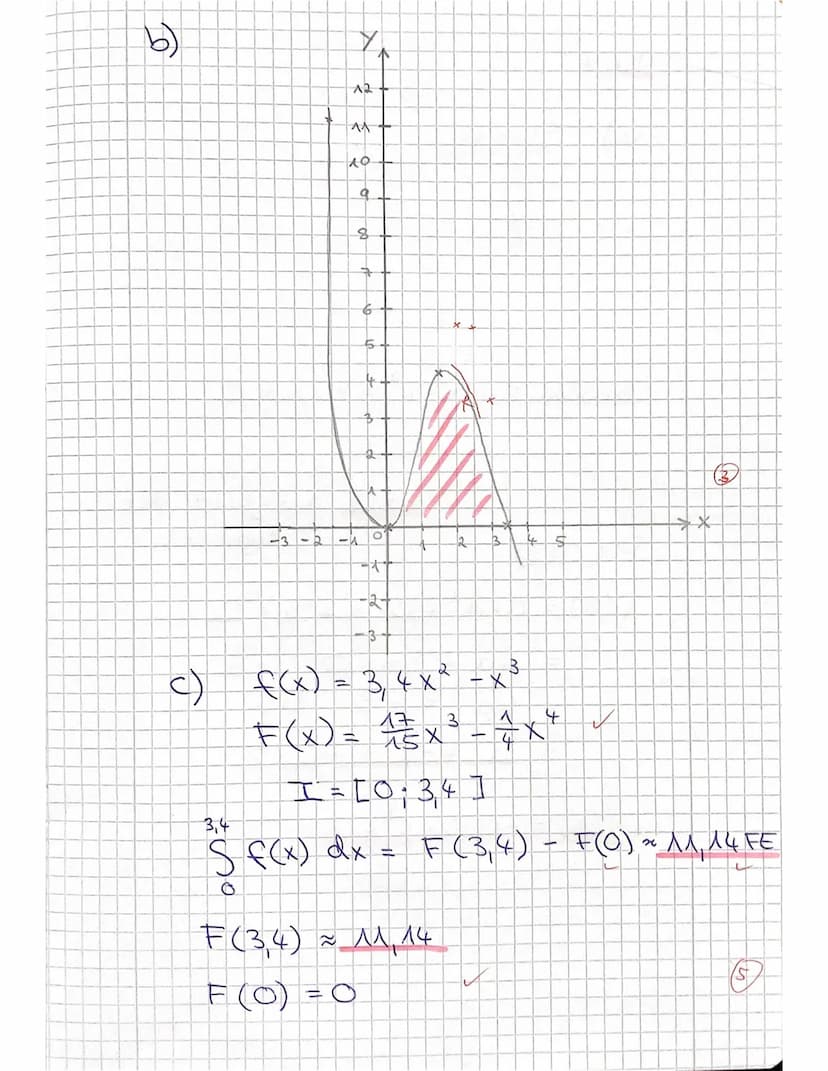 b)
Y
12
11
10
9
8
7
6
5
4
3
2
1
-3 -2 -1 0 1 2 3 4 5 X
-1
-2
-3
3
c) f(x) = 3,4x² - x³
F(x) = 17/15 x³ - 1/4 x⁴ ✓
I = [0; 3,4]
∫₀^3,4 f(x) dx = F(3,4) - F(0) ≈ 11,14 FE
F(3,4) ≈ 11,14
F(0) = 0 ✓
5